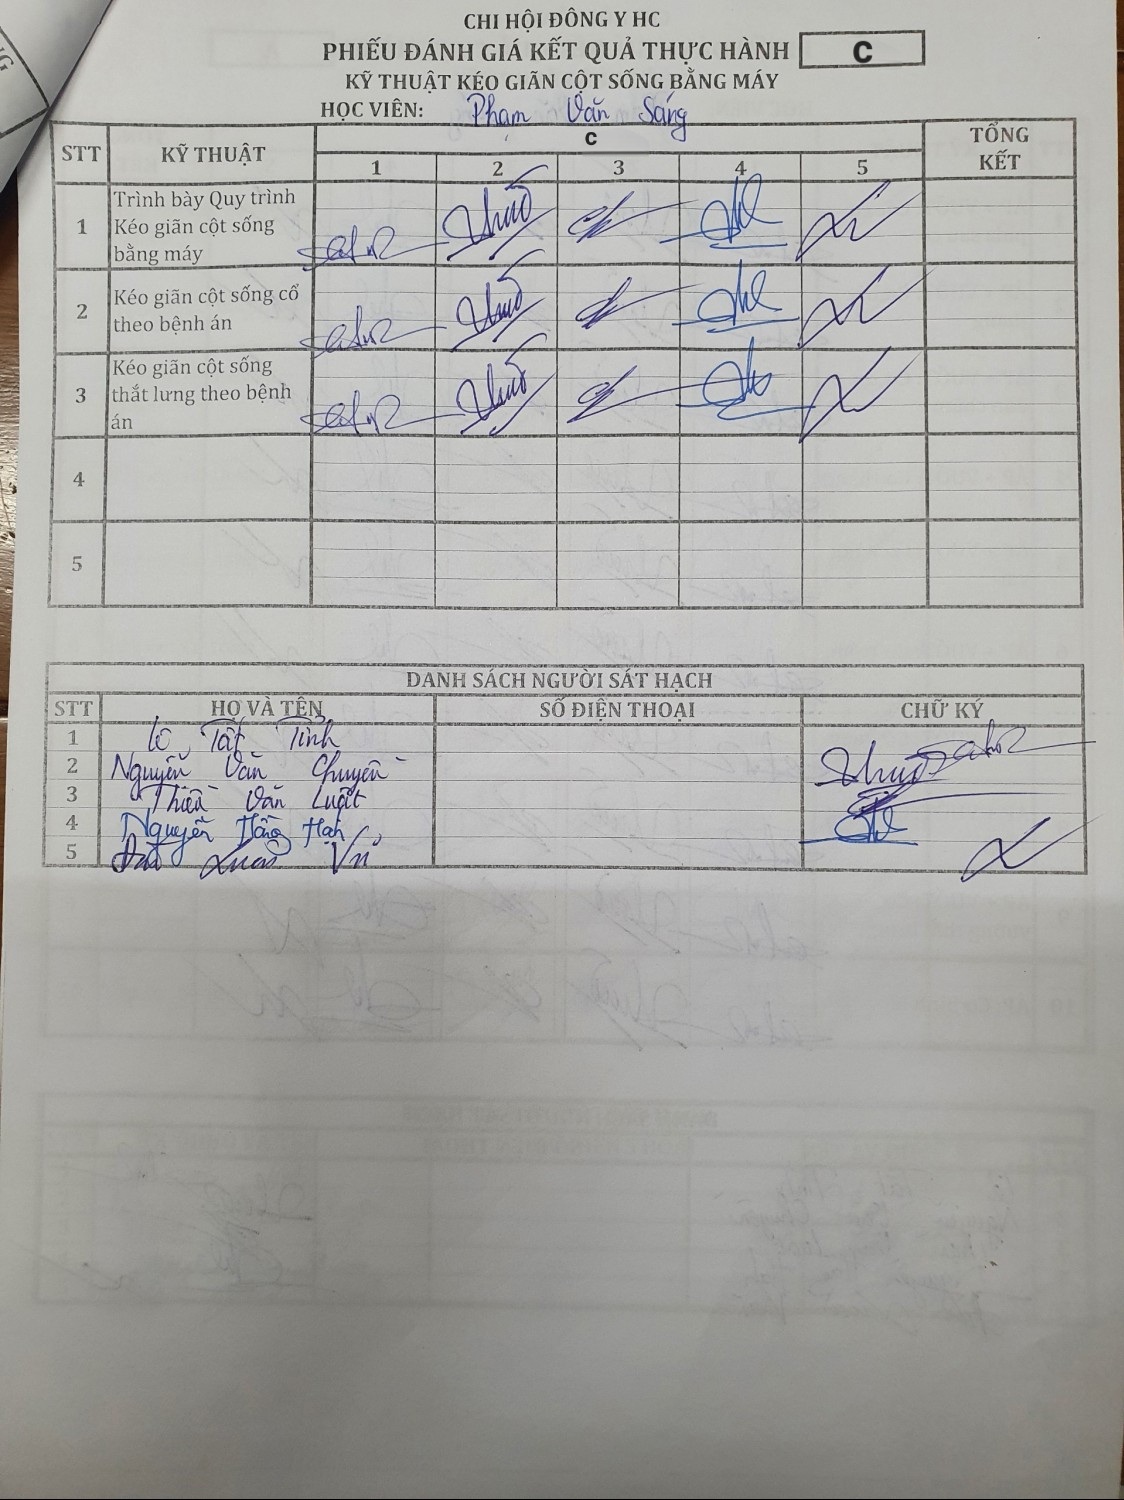 CHI HỘI ĐÔNG Y HC
PHIẾU ĐÁNH GIÁ KẾT QUẢ THỰC HÀNH C
KỸ THUẬT KÉO GIÃN CỘT SỐNG BẰNG MÁY
HỌC VIÊN: Phạm Văn Sáng
STT KỸ THUẬT C TỔNG KẾT
1 2 3 4 5
1 Trình bày Quy trình
Kéo giãn cột sống
bằng máy
2 Kéo giãn cột sống cổ
theo bệnh án
3 Kéo giãn cột sống
thắt lưng theo bệnh
án
4
5
DANH SÁCH NGƯỜI SÁT HẠCH
STT HỌ VÀ TÊN SỐ ĐIỆN THOẠI CHỮ KÝ
1 Tất Tỉnh
2 Nguyễn Văn Chuyền
3 Văn Luật
4 Nguyễn Hồng Hạnh
5